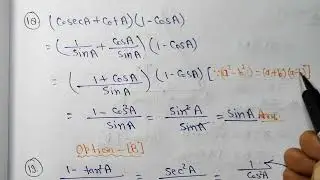 (18) (CosecA + CotA)(1 - CosA)
= (1/SinA + CosA/SinA)(1 - CosA)
= (1 + CosA/SinA)(1 - CosA) [∵ (a² - b²) = (a+b)(a-b)]
= 1 - Cos²A/SinA = Sin²A/SinA = SinA Ans.
Option - [B]
19. 1 - tan²A = Sec²A = 1/Cos²A